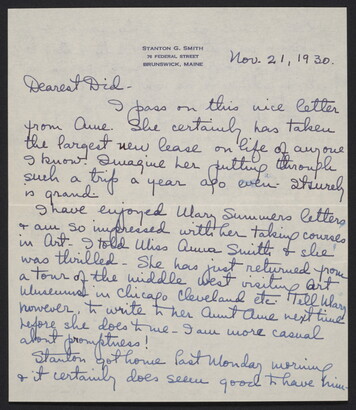 STANTON G. SMITH
76 FEDERAL STREET
BRUNSWICK, MAINE
Nov. 21, 1930.
Dearest Did -
I pass on this nice letter
from Anne. She certainly has taken
the largest new lease on life of anyone
I know. Imagine her putting through
such a trip a year ago even. It surely
is grand.
I have enjoyed Mary Summers letters
& am so impressed with her taking courses
in Art. I told Miss Anna Smith & she
was thrilled - She has just returned from
a tour of the middle west visiting Art
Museums in Chicago Cleveland etc. Tell Mary
however, to write to her Aunt Anne next time
before she does to me - I am more casual
about promptness!
Stanton got home last Monday morning
& it certainly does seem good to have him -